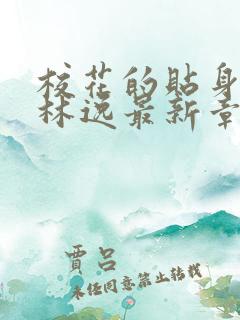 校花的贴身
林逸最新章
贾吕
未经同意禁止转载